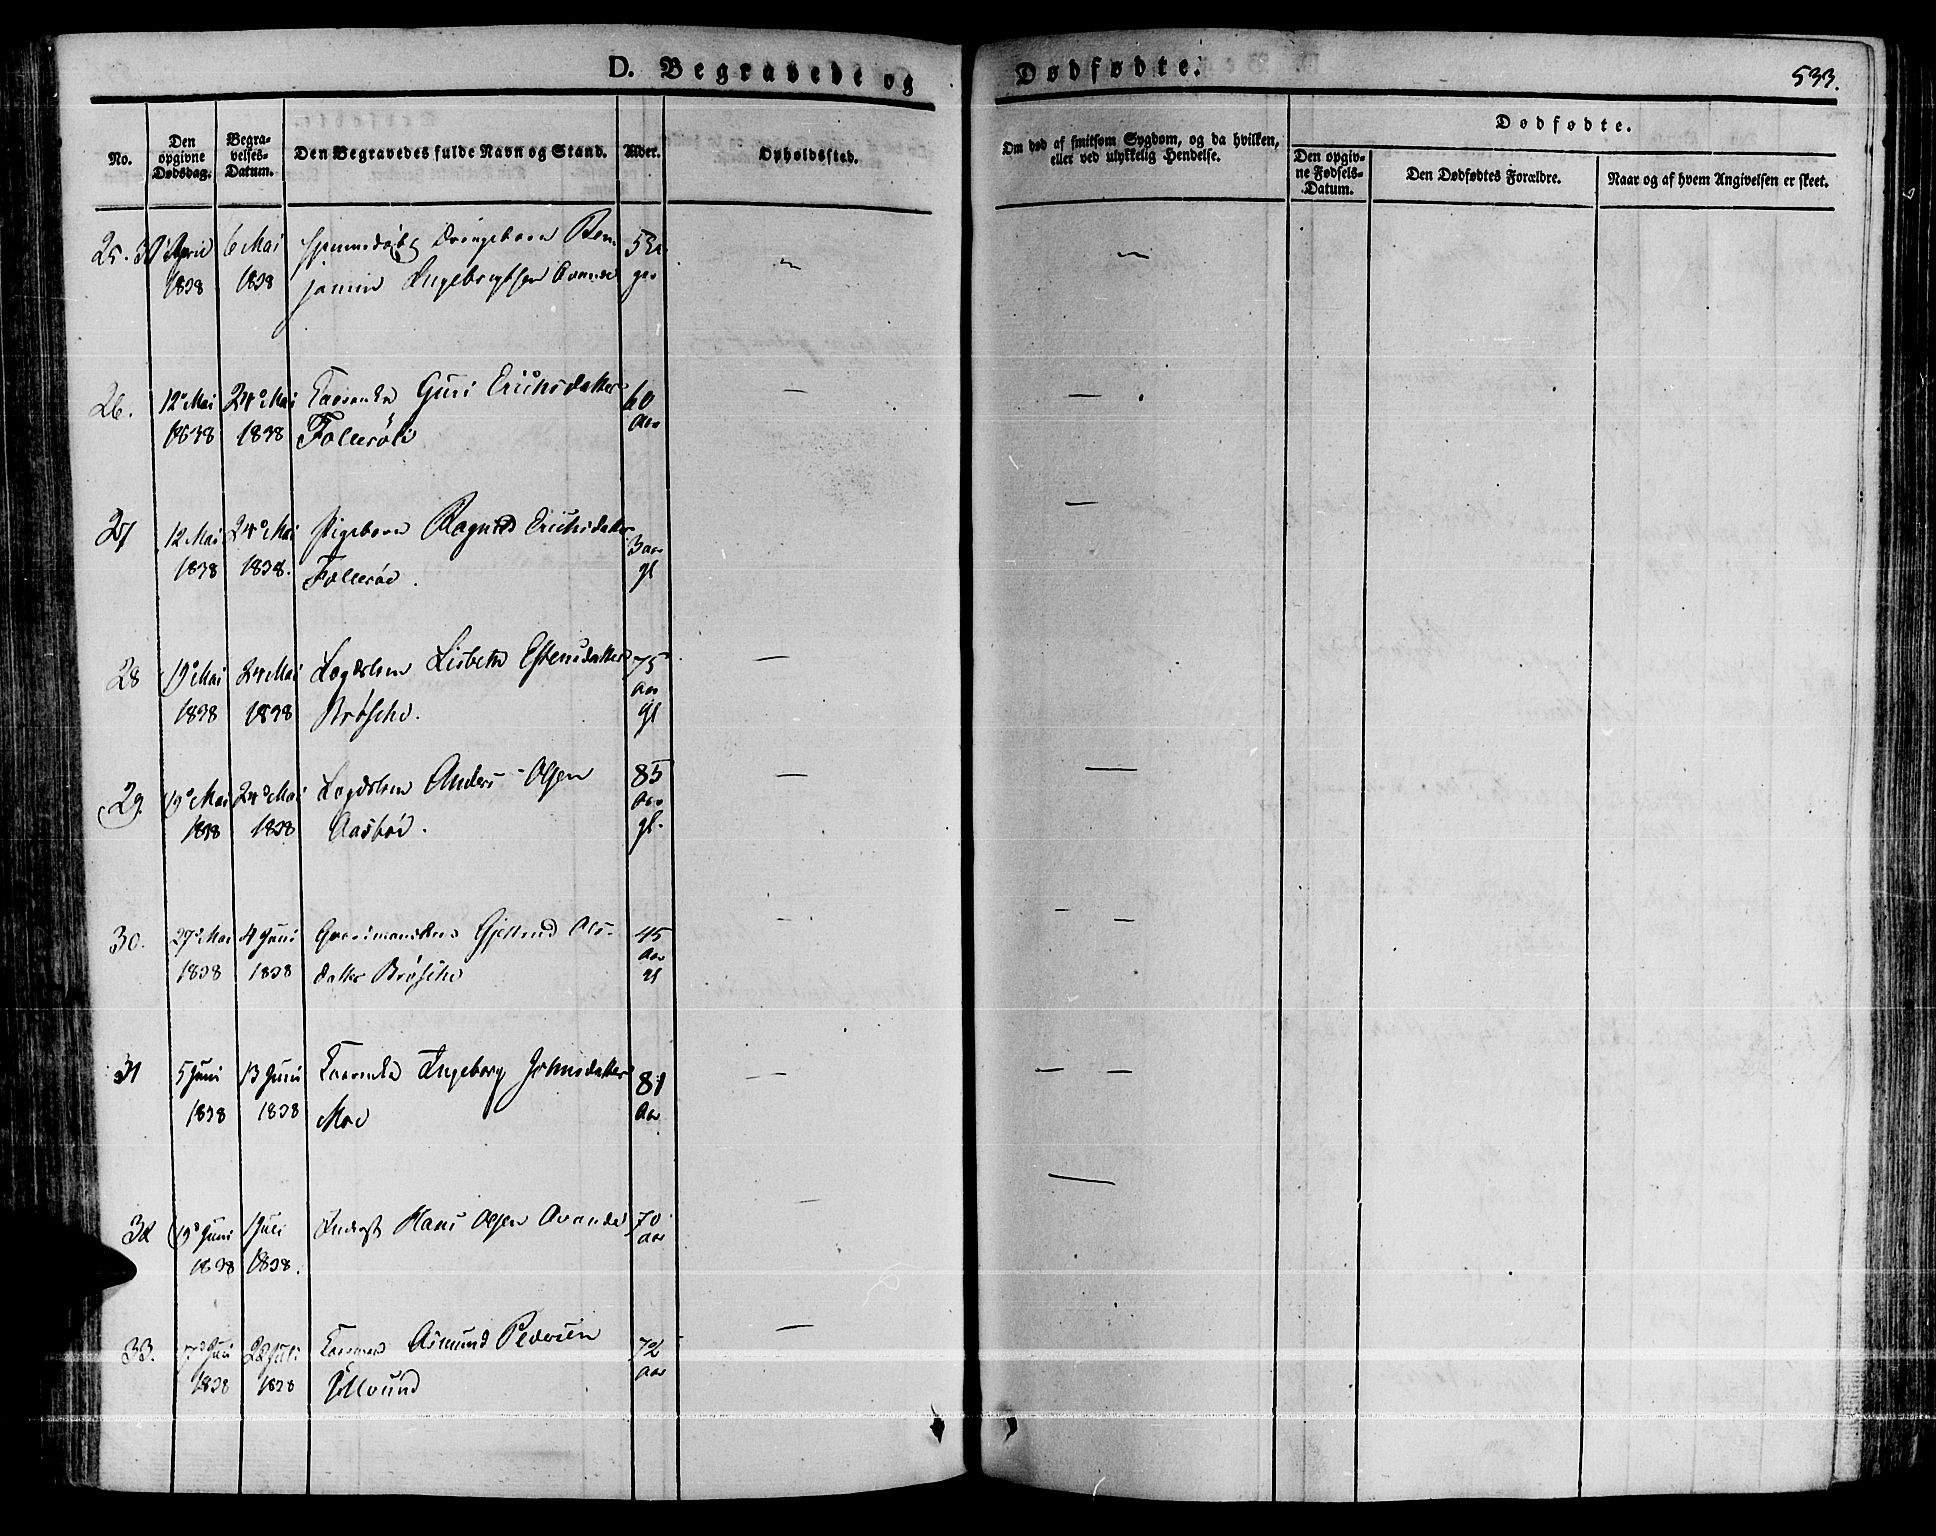 D. Begravede og Dødfødte.
533.
No.
Den opgivne Dødsdag.
Begravelses-Datum.
Den Begravedes fulde Navn og Stand.
Alder.
Opholdssted.
Om død af smitsom Sygdom, og da hvilken,
eller ved ulykkelig Hendelse.
Dødfødte.
Den opgivne Fødsels-Datum.
Den Dødfødtes Forældre.
Naar og af hvem Angivelsen er skeet.
25. April 6 Mai Drengebarn Ben
1838 1838 jamin Ingebrigtsen
26. 12 Mai 24 Mai Guri Erichsdatter 60
1838 1838 Aar
27 12 Mai 24 Mai Pigebarn Ragnild Erichsdatter 3 aar
1838 1838. gl
28 19 Mai 24 Mai Lægdslem Lisbeth Estensdatter 75
1838 1838 Brøsche. Aar gl
29. 19 Mai 24 Mai Lægdslem Anders Olsen 85
1838 1838 Aasbøe. Aar gl.
30. 27 Mai 4 Juni Gaardmandskone Gjertrud Ols- 45
1838 1838 datter Brøsche Aar gl
31 5 Juni 13 Juni Ingeborg Johnsdatter 81
1838 1838 Moe Aar
32 19 Juni 1 Juli Inderst Hans Olsen 70
1838 1838. aar
33. 28 Juli Asmund Pedersen 72
1838 1838 aar